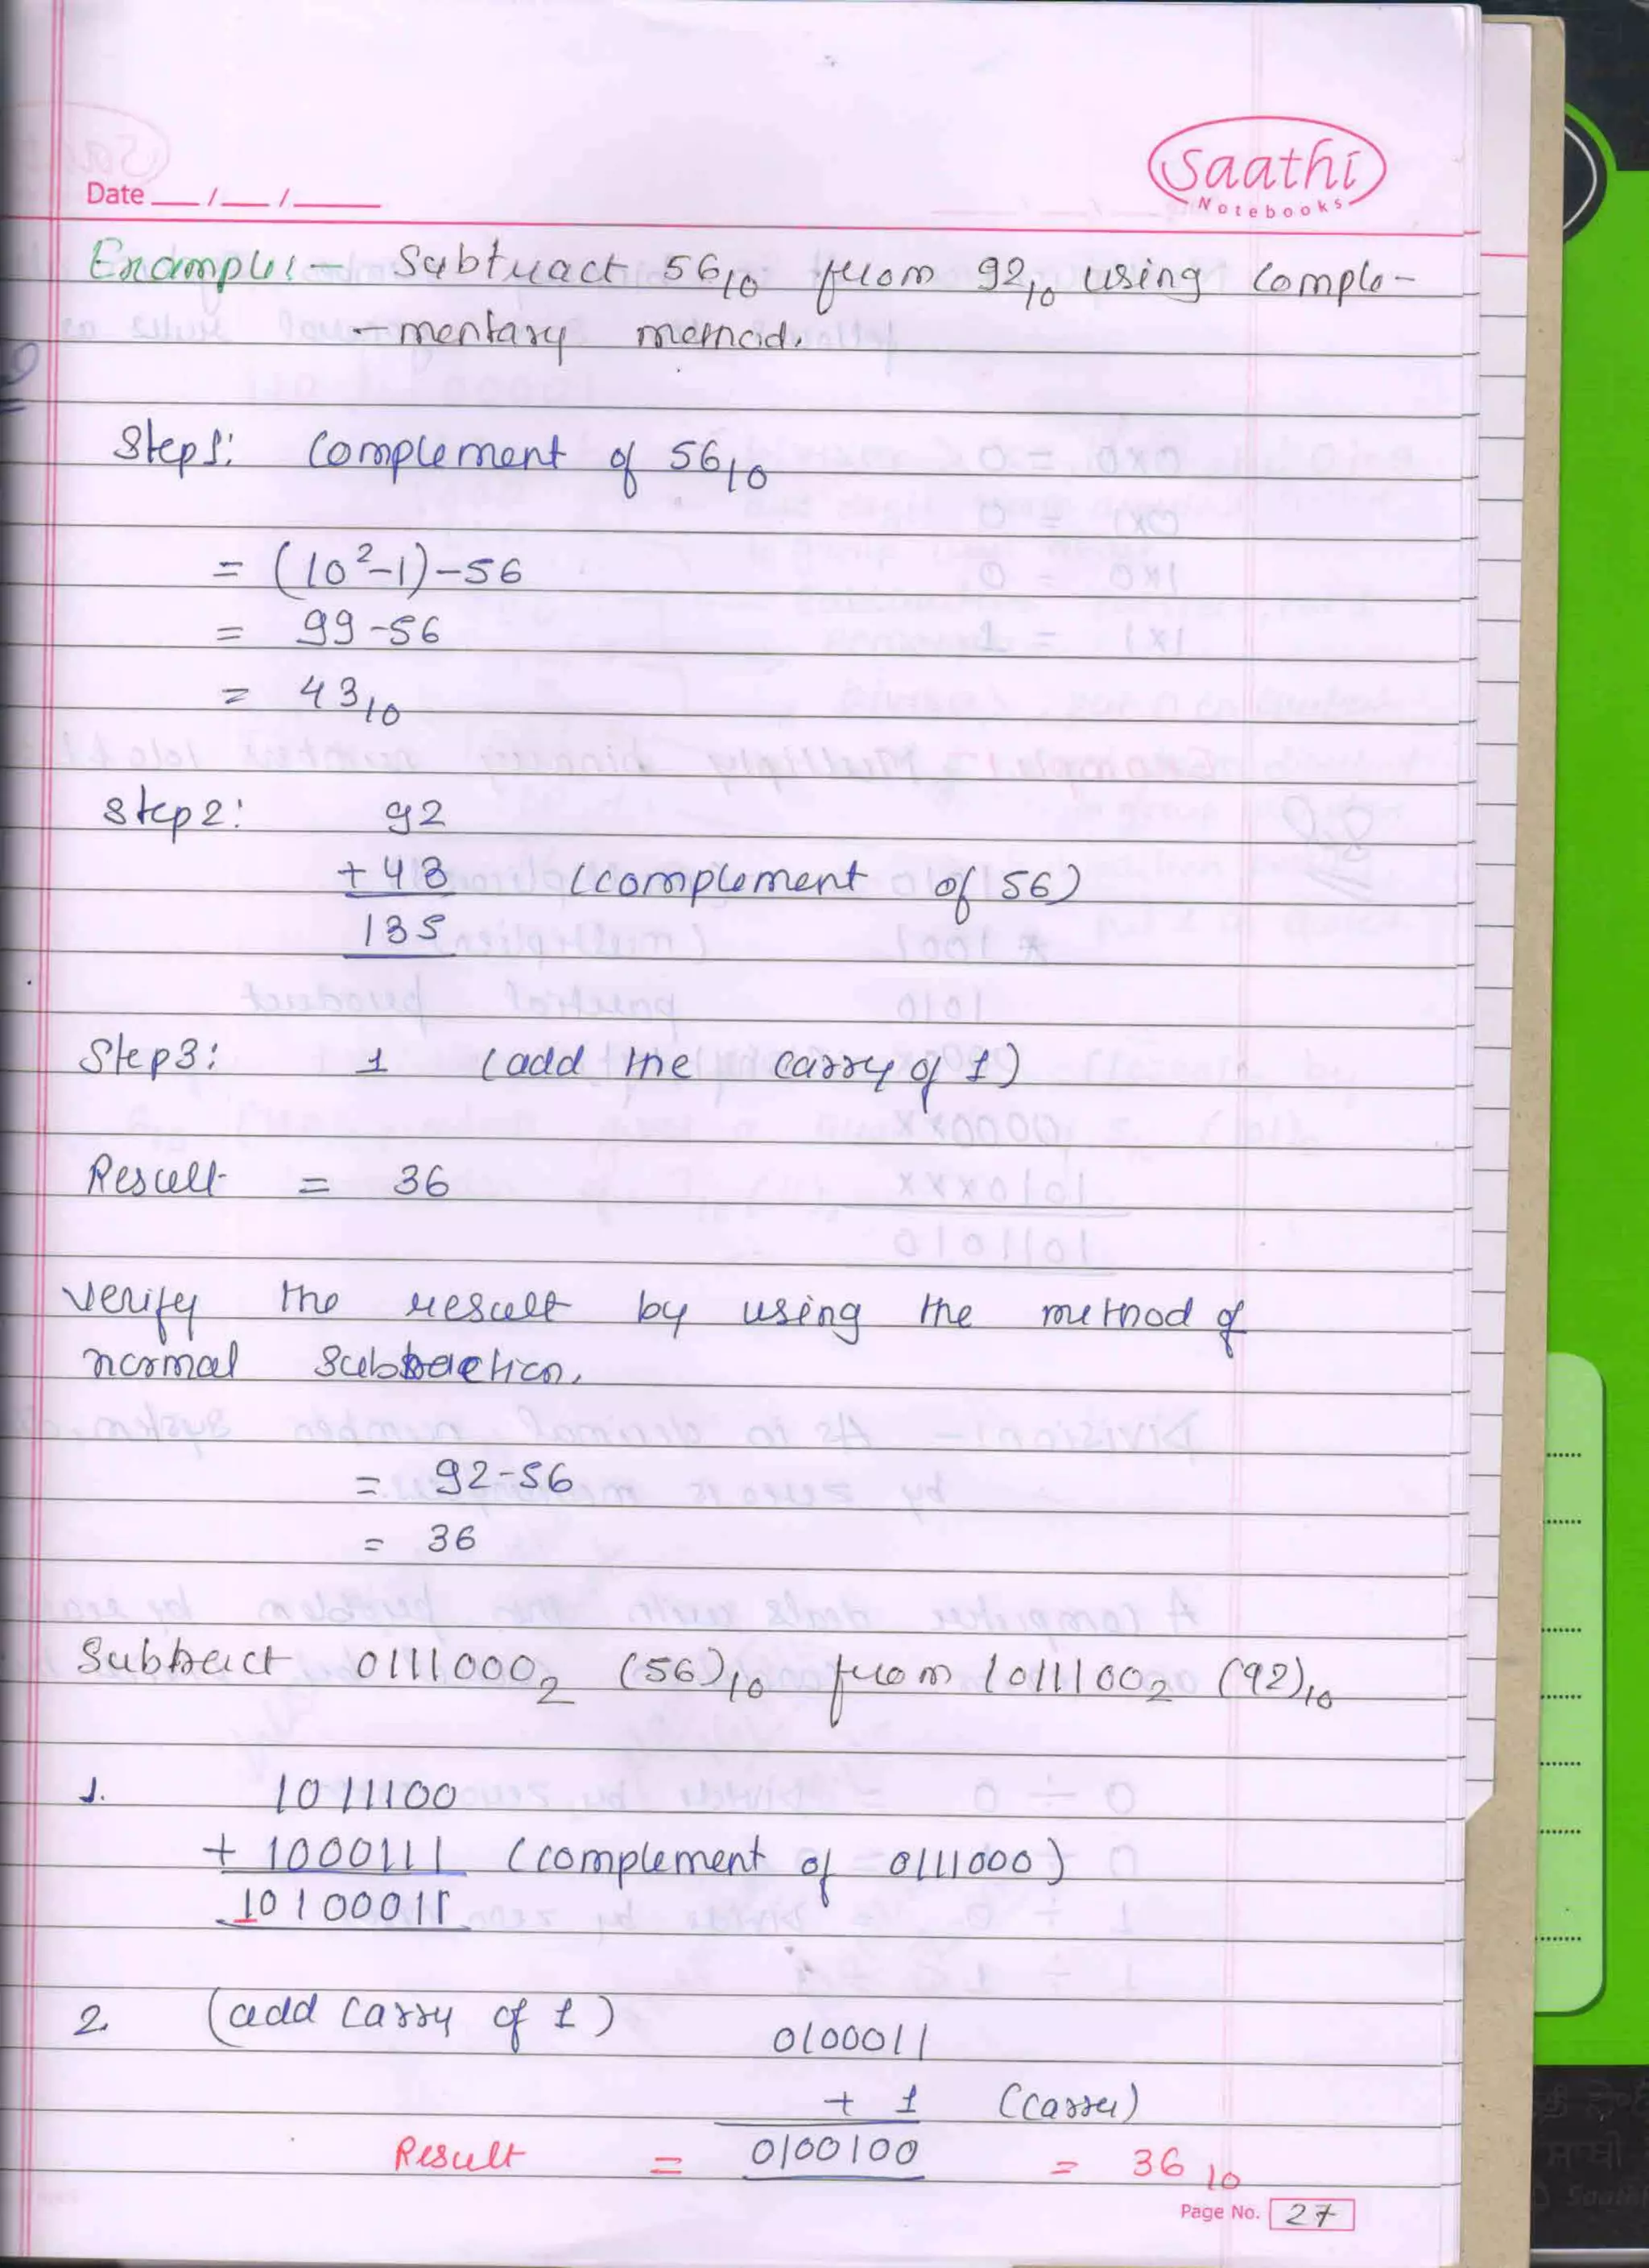 Saathi
Notebooks
Date ___/___/_____
Example:- Subtract 56₁₀ from 92₁₀ using comple-
-mentary method.
Step1: Complement of 56₁₀
= (10²-1)-56
= 99-56
= 43₁₀
Step2: 92
+43 (complement of 56)
135
Step3: 1 (add the carry of 1)
Result = 36
Verify the result by using the method of
normal subtraction.
= 92-56
= 36
Subtract 0111000₂ (56)₁₀ from 1011100₂ (92)₁₀
1. 1011100
+ 1000111 (complement of 0111000)
10100011
2. (add carry of 1) 0100011
+ 1 (carry)
Result = 0100100 = 36₁₀
Page No. 27